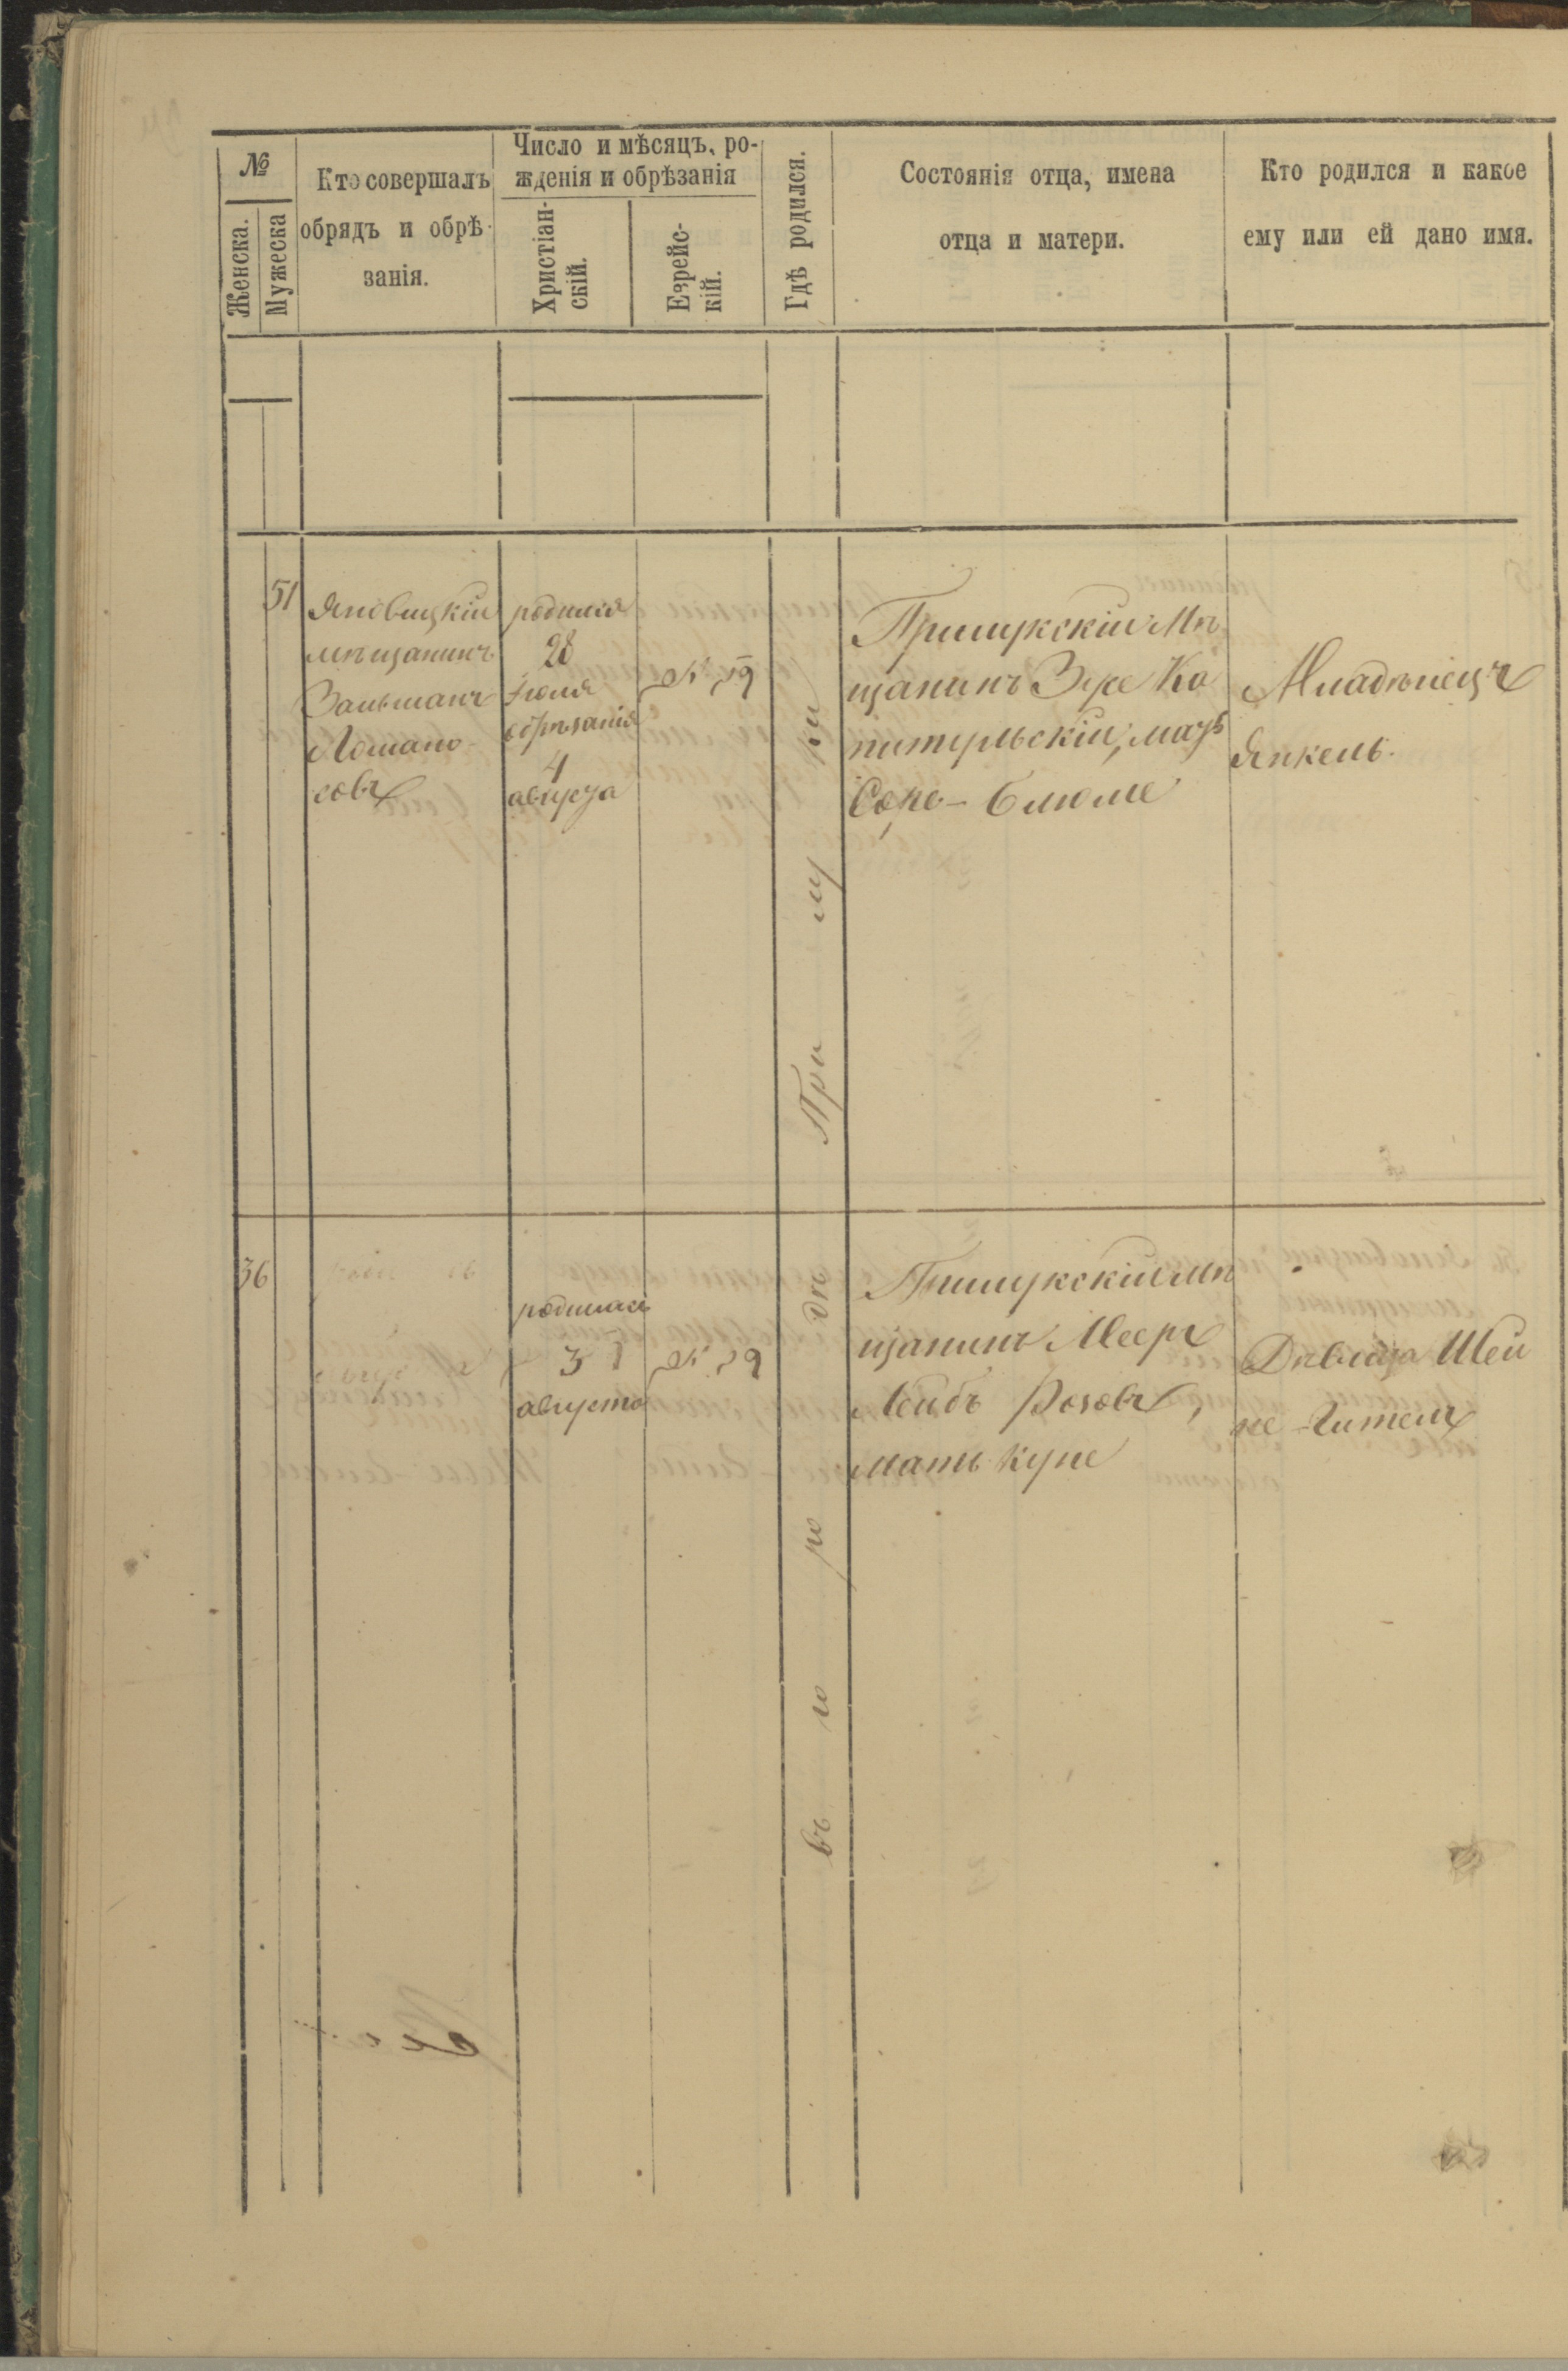 №
Женска.
Мужеска
Кто совершалъ
обрядъ и обрѣ-
занія.
Число и мѣсяцъ, ро-
жденія и обрѣзанія
Христіан-
скій.
Еврейс-
кій.
Гдѣ родился.
Состоянія отца, имена
отца и матери.
Кто родился и какое
ему или ей дано имя.
51
Яновицкій
мѣщанинъ
Зальманъ
Ломано-
совъ
родился
28
Іюля
обрѣзанія
4
августа
въ го ро дѣ При лу ки
Прилукскій Мѣ
щанинъ Ко
питульскій, мать
Соре-Блюме
Младѣнецъ
Янкель
36
родилась
3
августа
Прилукскій мѣ
щанинъ Мееръ
Лейбъ Розовъ,
мать
Дѣвица Шей
не-Гитель